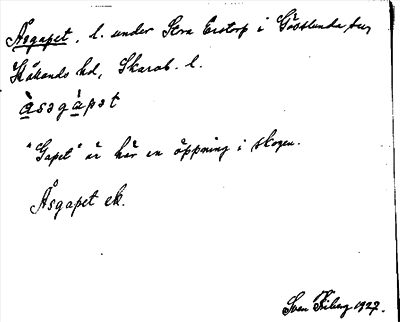 Åsgapet, l. under Stora Enstorp i Götlunda sn,
Håkands hd, Skarab. l.
àsagàpet
"Gapet" är här en öppning i skogen.
Åsgapet ek.
Sven 1927.